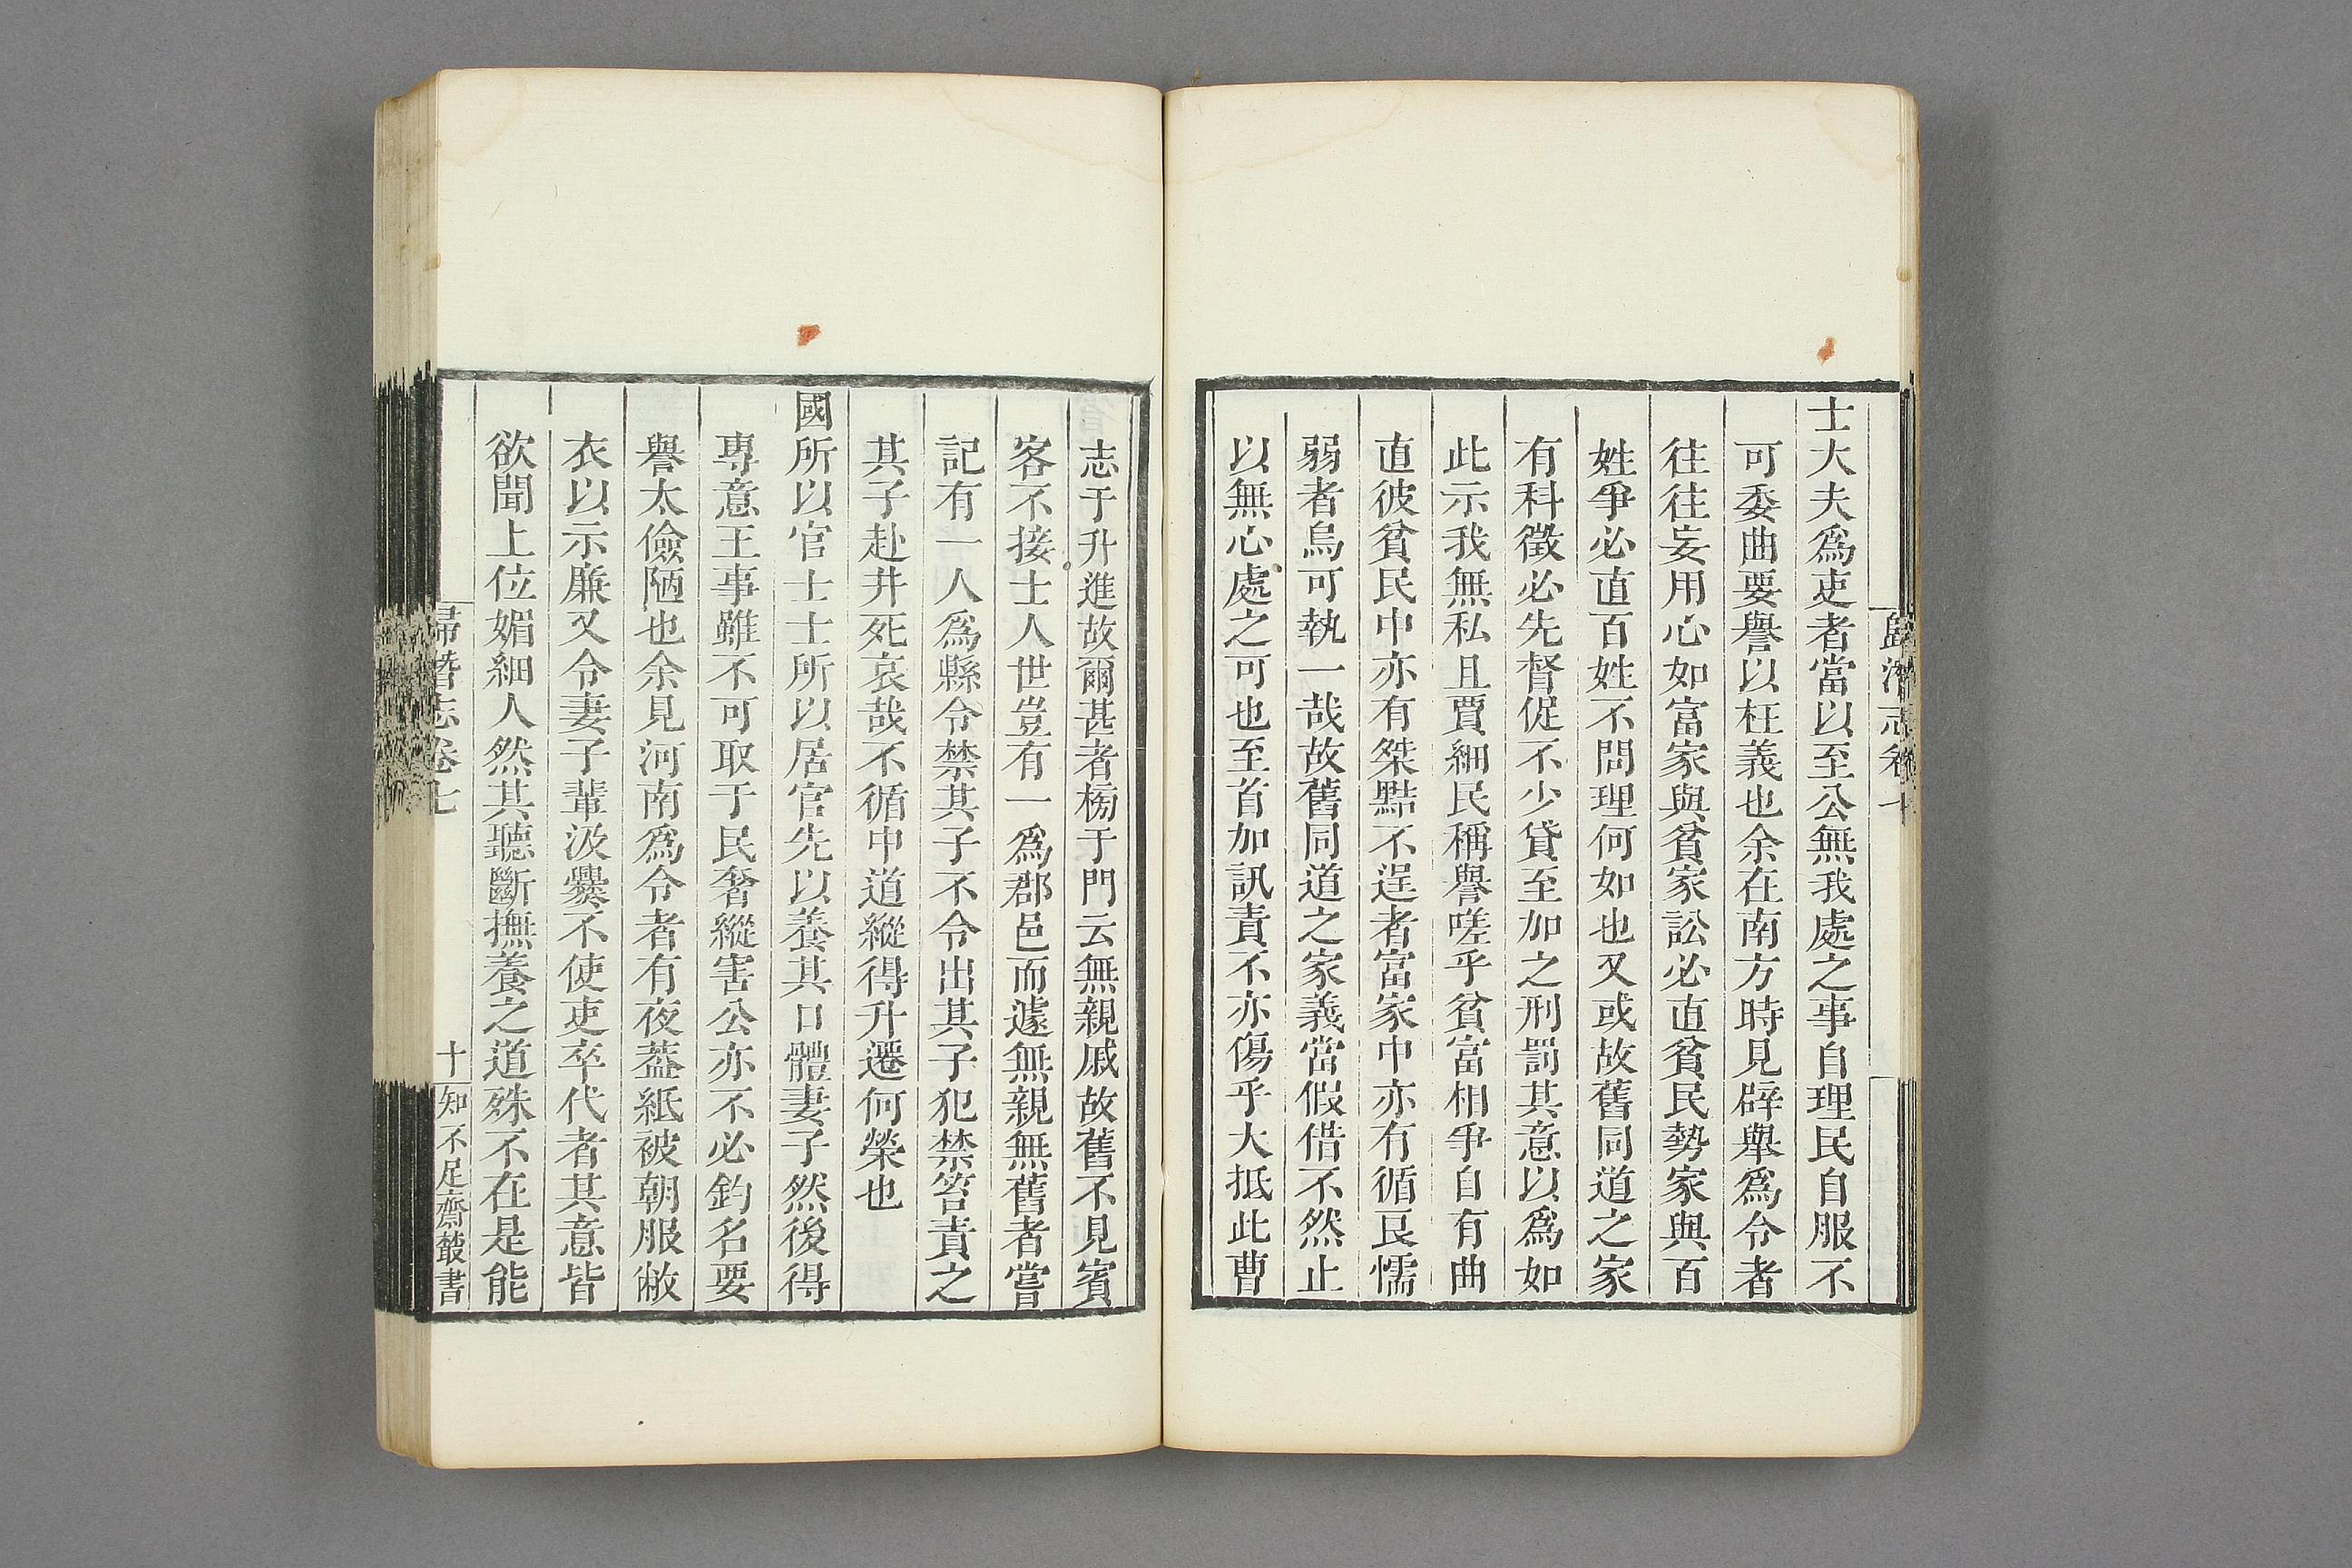 士大夫爲吏者當以至公無我處之事自理民自服不
可委曲要譽以枉義也余在南方時見辟舉爲令者
往往妄用心如富家與貧家訟必直貧民勢家與百
姓爭必直百姓不問理何如也又或故舊同道之家
有科徵必先督促不少貸至加之刑罰其意以爲如
此示我無私且賈細民稱譽嗟乎貧富相爭自有曲
直彼貧民中亦有桀黠不逞者富家中亦有循良懦
弱者烏可執一哉故舊同道之家義當假借不然止
以無心處之可也至首加訊責不亦傷乎大抵此曹
志于升進故爾甚者榜于門云無親戚故舊不見賓
客不接士人世豈有一爲郡邑而遽無親無舊者嘗
記有一人爲縣令禁其子不令出其子犯禁笞責之
其子赴井死哀哉不循中道縱得升遷何榮也
國所以官士士所以居官先以養其口體妻子然後得
專意王事雖不可取于民奢縱害公亦不必釣名要
譽太儉陋也余見河南爲令者有夜葢紙被朝服敝
衣以示廉又令妻子輩汲爨不使吏卒代者其意皆
欲聞上位媚細人然其聽斷撫養之道殊不在是能
歸潛志卷七
十
知不足齋叢書